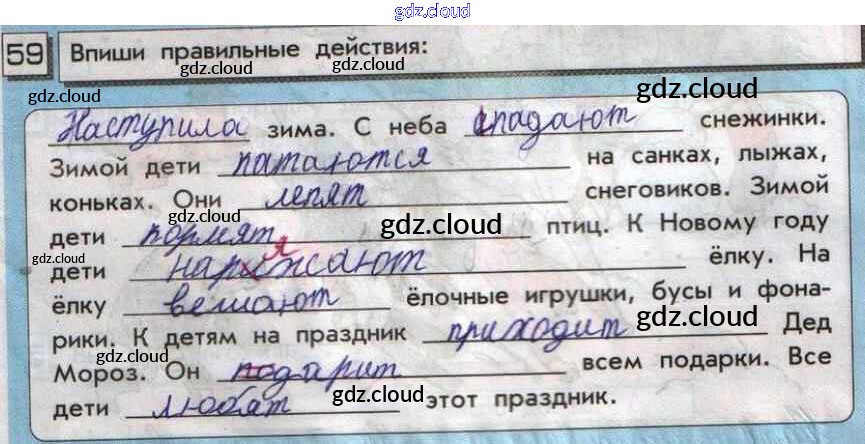 gdz.cloud
59 Впиши правильные действия:
gdz.cloud gdz.cloud
gdz.cloud gdz.cloud
Наступила зима. С неба спадают снежинки.
gdz.cloud
Зимой дети катаются на санках, лыжах,
коньках. Они лепят снеговиков. Зимой
gdz.cloud gdz.cloud
дети кормят птиц. К Новому году
дети наряжают ёлку. На
ёлку вешают ёлочные игрушки, бусы и фона-
gdz.cloud
рики. К детям на праздник приходит Дед
gdz.cloud
Мороз. Он подарит всем подарки. Все
gdz.cloud
дети любят этот праздник.